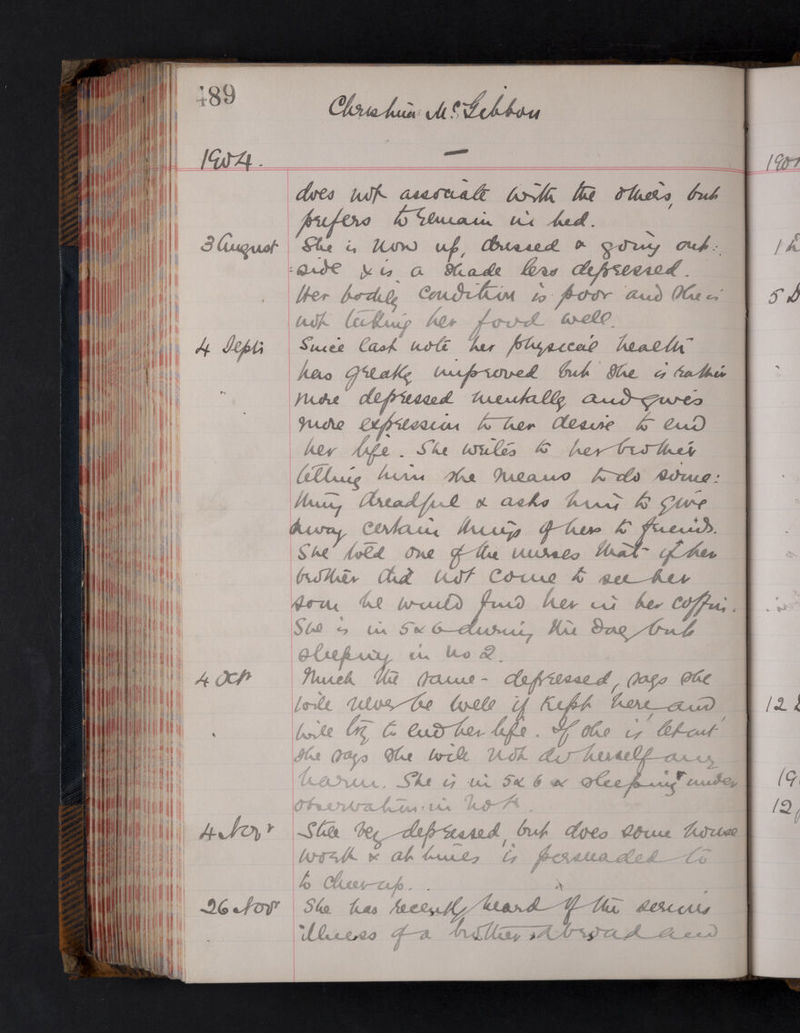 489
Christina McGibbon
1904.
does not associate with the others, but
prefers to remain in bed.
3 August She is now up, dressed & going out:
:side & is a shade less depressed.
Her bodily condition is poor and she is
not taking her food well.
4 Septr Since last note her physical health
has greatly improved but she is rather
more depressed mentally and gives
more expression to her desire to end
her life. She writes to her brother
telling him she means to do some:
thing dreadful & asks him to give
away certain things of hers to friends.
She told one of the nurses that if her
brother did not come to see her
soon he would find her in her coffin.
She is in 5 & 6 during the day but
sleeping in No 2.
4 Oct Much the same - depressed, says she
will never be well if kept here and
will try to end her life. If she is let out
she says she will not do herself any
harm. She is in 5 & 6 & sleeping under
observation in No
4 Novr Still very depressed, but does some house
work & at times is persuaded to
to cheer up.
26 Novr She has recently heard of the serious
illness of a brother abroad and
190
5 D
12
19
12